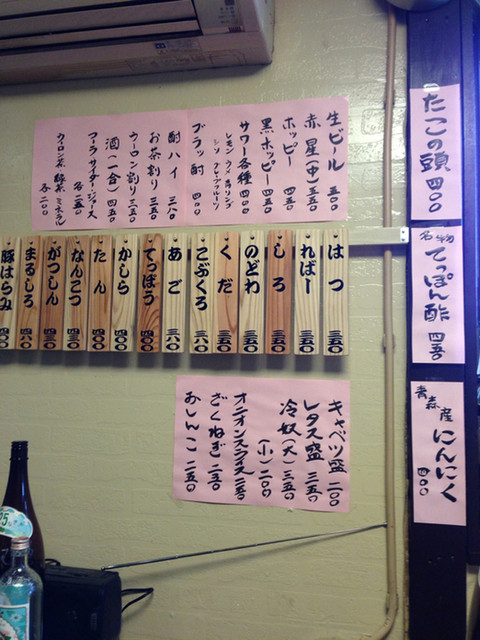 生ビール 五〇〇
赤星(中) 五五〇
ホッピー 四五〇
黒ホッピー 四五〇
サワー各種 四〇〇
レモン ウメ 青リンゴ
シソ グレープフルーツ
ブラッ酎 四〇〇
酎ハイ 三八〇
お茶割り 三五〇
ウーロン割り 三五〇
酒(一合) 四五〇
コーラ・サイダー・ジュース
各二五〇
ウーロン茶 緑茶 ミネラル
各二〇〇
はつ 三五〇
ればー 三五〇
しろ 三五〇
のどわ 三五〇
くだ 三五〇
こぶくろ 三八〇
あご 三八〇
てっぽう 四〇〇
かしら 四〇〇
たん 四〇〇
なんこつ 四〇〇
がつしん 四〇〇
まるしろ 四〇〇
豚はらみ 四〇〇
キャベツ盛 二〇〇
レタス盛 三五〇
冷奴(大) 三五〇
(小) 二〇〇
オニオンスライス 二五〇
ざくねぎ 二五〇
おしんこ 二五〇
たこの頭 四〇〇
名物 てっぽん酢 四五〇
青森産 にんにく 四〇〇
25%